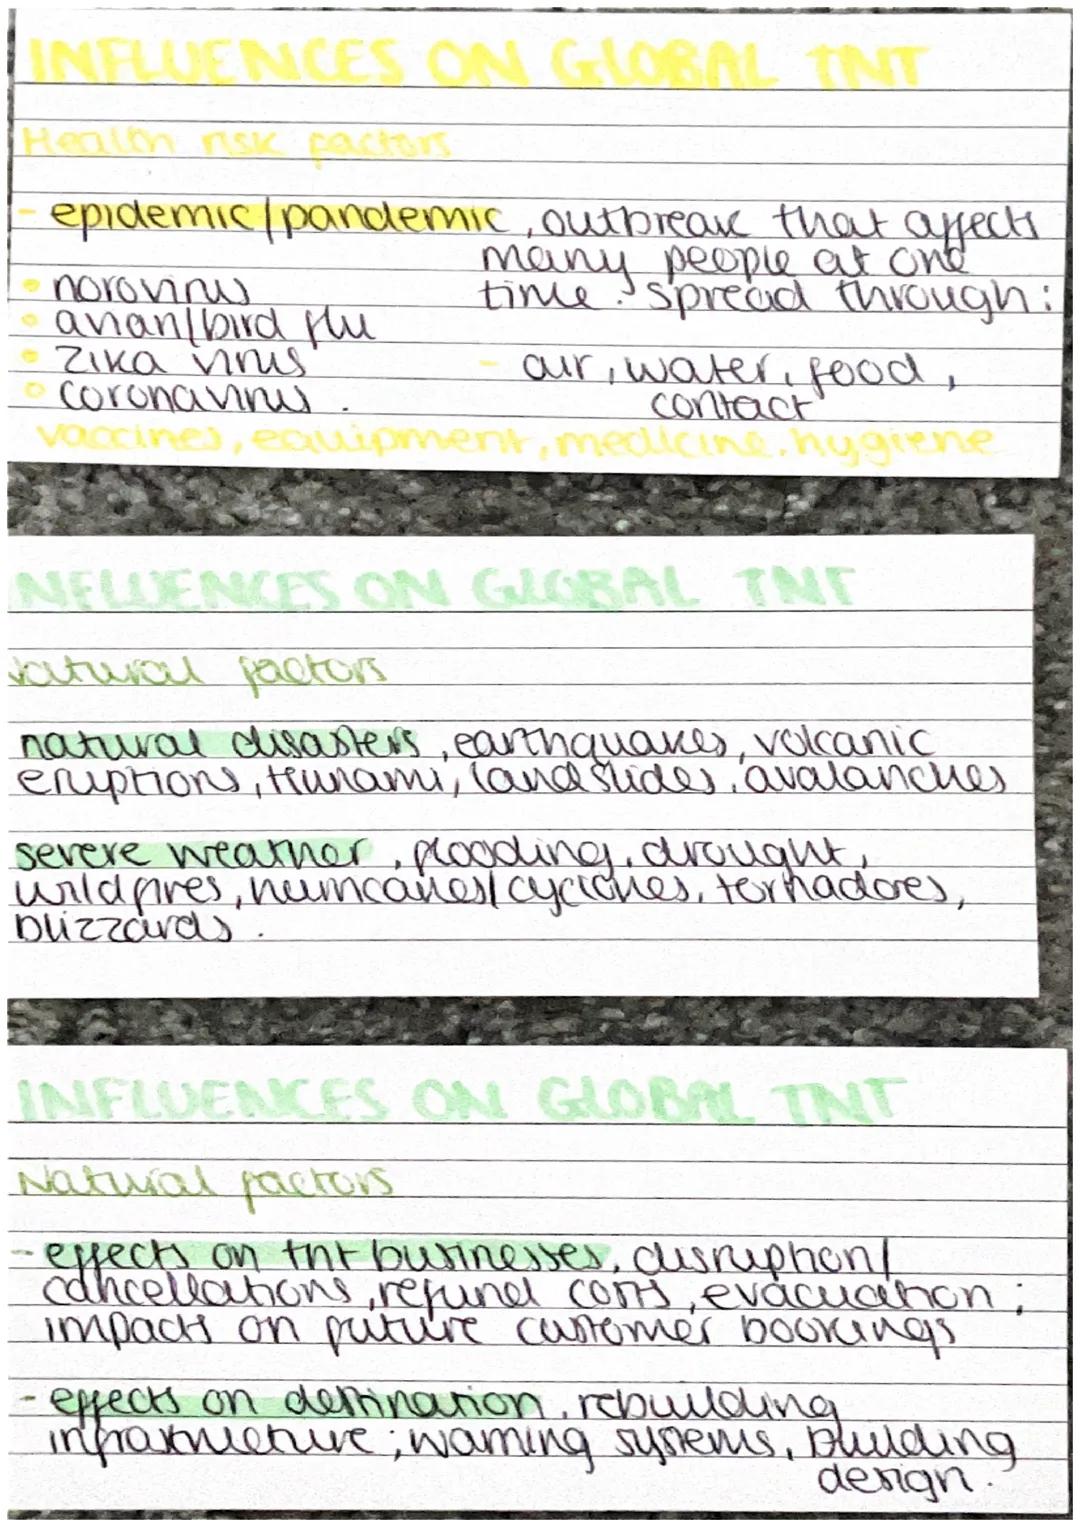 INFLUENCES ON GLOBAL TNT
Health risk factors
- epidemic/pandemic, outbreak that affects
many people at one
time. spread through:
• norovirus
• avian/bird flu
• zika virus
• coronavirus.
- air, water, food,
contact
vaccines, equipment, medicine, hygiene
NFLUENCES ON GLOBAL TNT
Natural factors
natural disasters, earthquakes, volcanic
eruptions, tsunami, landslides, avalanches
severe weather, flooding, drought,
wildfires, hurricanes/cyclones, tornadoes,
blizzards.
INFLUENCES ON GLOBAL TNT
Natural factors
- effects on tnt businesses, disruption/
cancellations, refund costs, evacuation;
impacts on future customer bookings
- effects on destination, rebuilding
infrastructure; warning systems, building
design.